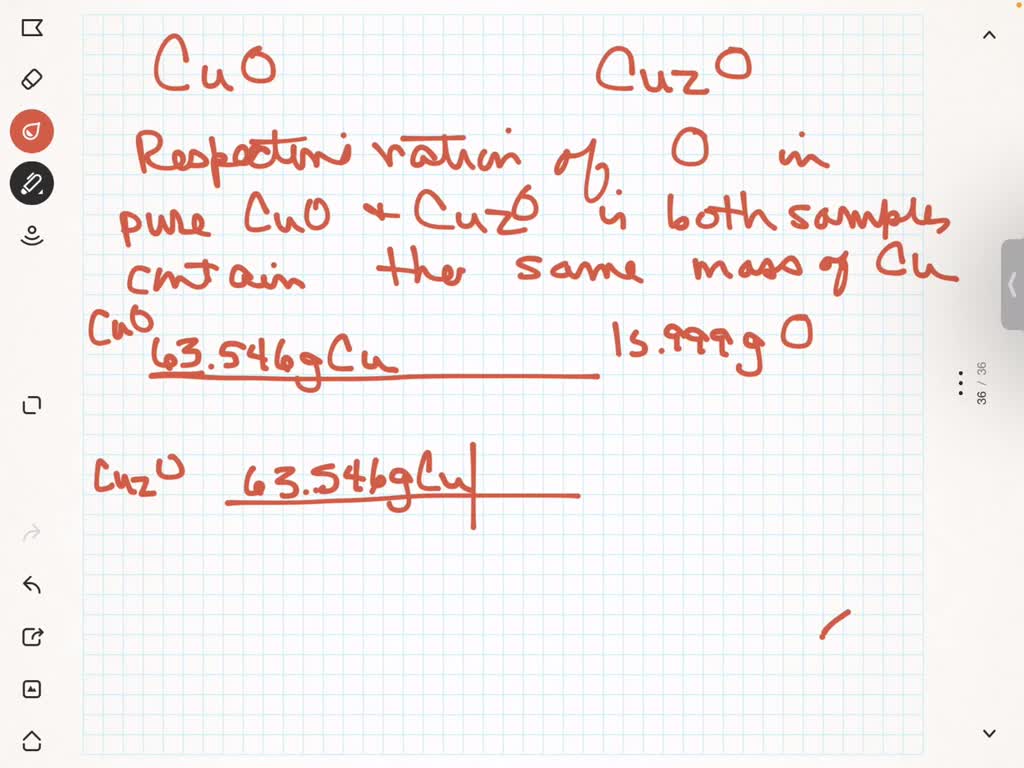 CuO Cu2O
Respective ration of O in
pure CuO + Cu2O is both samples
contain the same mass of Cu
CuO 63.546g Cu 15.999g O
Cu2O 63.546g Cu
36 / 36